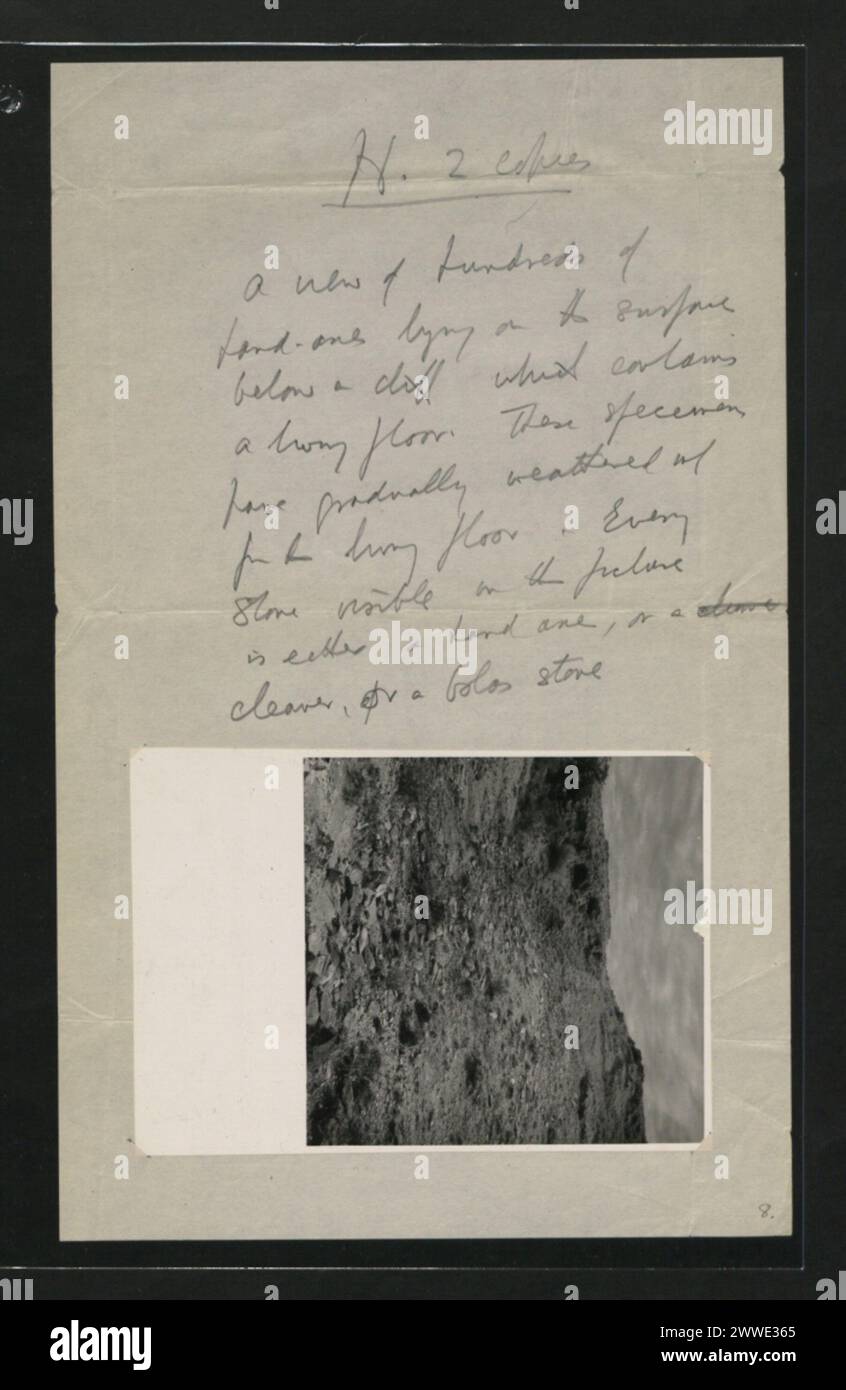 H. 2 copies
A view of hundreds of
hand-axes lying on the surface
below a cliff which contains
a living floor. These specimens
have gradually weathered out
from the living floor. Every
stone visible in the picture
is either a hand axe, or a cleaver
cleaver, or a bolas stone
8.
alamy
alamy
a
a
a
a
alamy
Image ID: 2WWE365
www.alamy.com